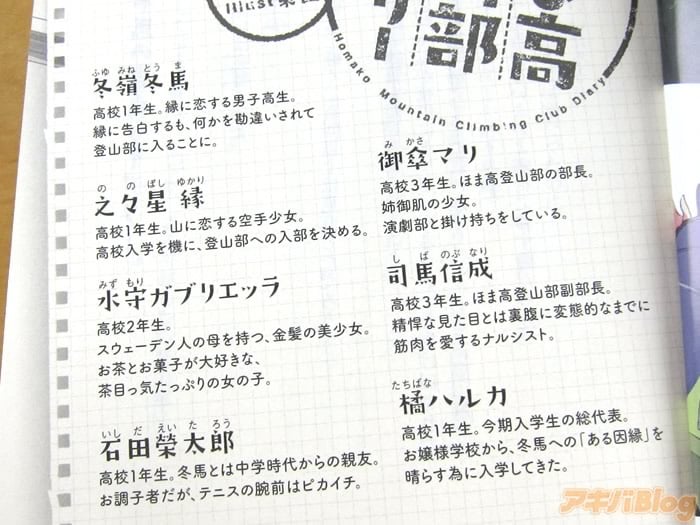 Illust
部
高
Homako Mountain Climbing Club Diary
ふゆみねとうま
冬嶺冬馬
高校1年生。縁に恋する男子高生。
縁に告白するも、何かを勘違いされて
登山部に入ることに。
ののぼしゆかり
之々星 縁
高校1年生。山に恋する空手少女。
高校入学を機に、登山部への入部を決める。
みずもり
水守ガブリエッラ
高校2年生。
スウェーデン人の母を持つ、金髪の美少女。
お茶とお菓子が大好きな、
茶目っ気たっぷりの女の子。
いしだえいたろう
石田榮太郎
高校1年生。冬馬とは中学時代からの親友。
お調子者だが、テニスの腕前はピカイチ。
みかさ
御傘マリ
高校3年生。ほま高登山部の部長。
姉御肌の少女。
演劇部と掛け持ちをしている。
しばのぶなり
司馬信成
高校3年生。ほま高登山部副部長。
精悍な見た目とは裏腹に変態的なまでに
筋肉を愛するナルシスト。
たちばな
橘ハルカ
高校1年生。今期入学生の総代表。
お嬢様学校から、冬馬への「ある因縁」を
晴らす為に入学してきた。
アキバBlog